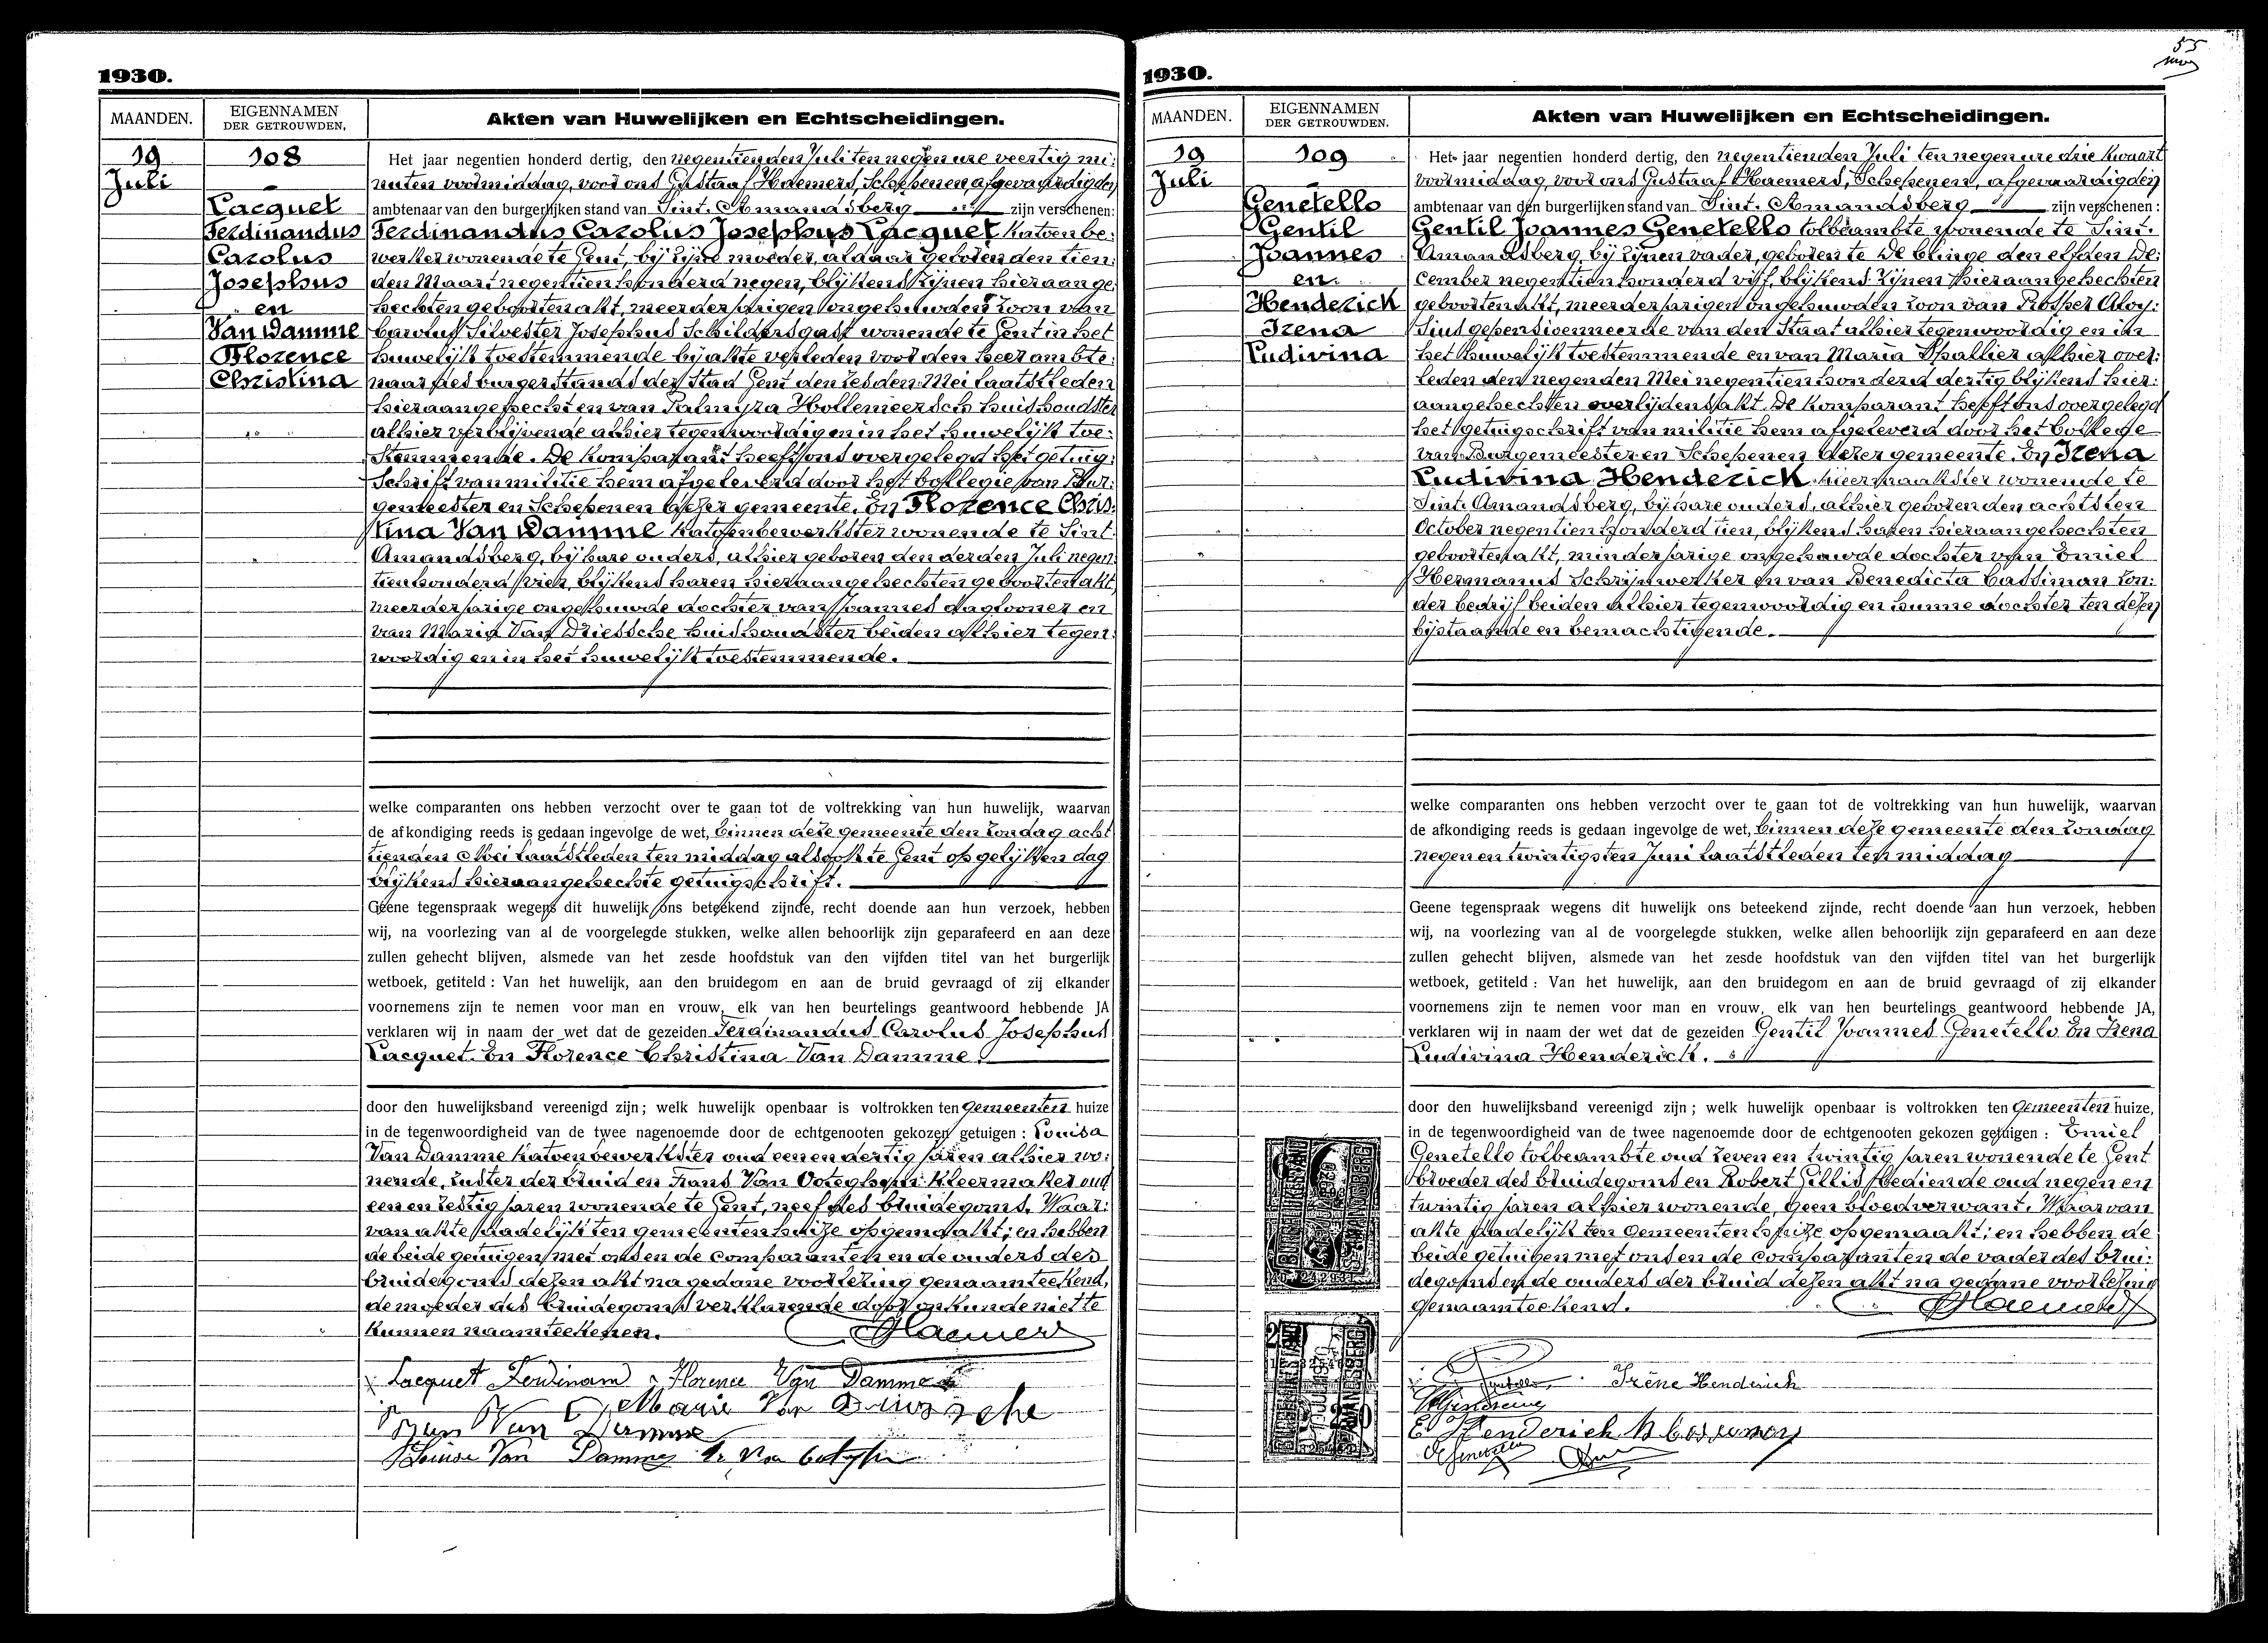 1930.
MAANDEN.
EIGENNAMEN
DER GETROUWDEN.
Akten van Huwelijken en Echtscheidingen.
19
Juli
108
Lacquet
Ferdinandus
Carolus
Josephus
en
Van Damme
Florence
Christina
Het jaar negentien honderd dertig, den negentienden Juli ten negen ure veertig mi:
nuten voormiddag, voor ons Gustaaf Haemers, Schepenen, afgevaardigden
ambtenaar van den burgerlijken stand van Sint. Amandsberg zijn verschenen:
Ferdinandus Carolus Josephus Lacquet katoenbe:
werker wonende te Gent, bij zijne moeder, aldaar geboren den tien:
den Maart negentien honderd negen, blijkens zijnen hieraange:
hechten geboortenakt, meerderjarigen ongehuwden zoon van
Carolus Silvester Josephus Schildersgast wonende te Gent in het
huwelijk toestemmende bij akte verleden voor den heer ambte:
naar des burgerstands der Stad Gent den zesden Mei laatstleden
hieraangehecht en van Palmyra Hollemeersch huishoudster
alhier verblijvende alhier tegenwoordig en in het huwelijk toe:
stemmende. De komparant heeft ons overgelegd het getuig:
schrift van militie hem afgeleverd door het kollegie van Bur:
gemeester en Schepenen dezer gemeente. En Florence Chris:
tina Van Damme katoenbewerkster wonende te Sint.
Amandsberg, bij hare ouders, alhier geboren den derden Juli negen:
tienhonderd vier, blijkens haren hieraangehechten geboortenakt,
meerderjarige ongehuwde dochter van Joannes daglooner en
van Maria Van Driessche huishoudster beiden alhier tegen:
woordig en in het huwelijk toestemmende.
welke comparanten ons hebben verzocht over te gaan tot de voltrekking van hun huwelijk, waarvan
de afkondiging reeds is gedaan ingevolge de wet, binnen deze gemeente den zondag acht
tienden Mei laatstleden ten middag alsook te Gent op gelijken dag
blijkens hieraangehechte getuigschrift.
Geene tegenspraak wegens dit huwelijk ons beteekend zijnde, recht doende aan hun verzoek, hebben
wij, na voorlezing van al de voorgelegde stukken, welke allen behoorlijk zijn geparafeerd en aan deze
zullen gehecht blijven, alsmede van het zesde hoofdstuk van den vijfden titel van het burgerlijk
wetboek, getiteld : Van het huwelijk, aan den bruidegom en aan de bruid gevraagd of zij elkander
voornemens zijn te nemen voor man en vrouw, elk van hen beurtelings geantwoord hebbende JA
verklaren wij in naam der wet dat de gezeiden Ferdinandus Carolus Josephus
Lacquet. En Florence Christina Van Damme.
door den huwelijksband vereenigd zijn; welk huwelijk openbaar is voltrokken ten Gemeenten huize
in de tegenwoordigheid van de twee nagenoemde door de echtgenooten gekozen getuigen : Louisa
Van Damme katoenbewerkster oud eenendertig jaren alhier wo:
nende, zuster der bruid en Frans Van Ooteghem Kleermaker oud
eenenzestig jaren wonende te Gent, neef des bruidegoms. Waar:
van akte dadelijk ten gemeentenhuize opgemaakt; en hebben
de beide getuigen met ons en de comparanten en de ouders der
bruidegoms dezen akt na gedane voorlezing genaamteekend,
de moeder des bruidegoms verklarende door onkunde niet te
kunnen naamteekenen. GHaemers
Lacquet Ferdinand Florence Van Damme
Marie Van Driessche
Van Damme
Louise Van Damme
1930.
55
MAANDEN.
EIGENNAMEN
DER GETROUWDEN.
Akten van Huwelijken en Echtscheidingen.
19
Juli
109
Genetello
Gentil
Joannes
en
Henderick
Irena
Ludivina
Het jaar negentien honderd dertig, den negentienden Juli ten negen ure drie kwaart
voormiddag, voor ons Gustaaf Haemers, Schepenen, afgevaardigden
ambtenaar van den burgerlijken stand van Sint. Amandsberg zijn verschenen :
Gentil Joannes Genetello tolbeambte wonende te Sint.
Amandsberg, bij zijnen vader, geboren te De Klinge den elfden De:
cember negentien honderd vijf, blijkens zijnen hieraangehechten
geboortenakt, meerderjarigen ongehuwden zoon van Prosper Aloy:
sius gepensioenneerde van den Staat alhier tegenwoordig en in
het huwelijk toestemmende en van Maria Thallier alhier over:
leden den negenden Mei negentien honderd dertig blijkens hier:
aangehechten overlijdensakt. De komparant heeft ons overgelegd
het getuigschrift van militie hem afgeleverd door het kollege
van Burgemeester en Schepenen dezer gemeente. En Irena
Ludivina Henderick linnenaakster wonende te
Sint. Amandsberg, bij hare ouders, alhier geboren den achtsten
October negentien honderd tien, blijkens haren hieraangehechten
geboortenakt, minderjarige ongehuwde dochter van Emiel
Hermanus Schrijnwerker en van Benedicta Cassiman zon:
der bedrijf beiden alhier tegenwoordig en hunne dochter ten dezen
bijstaande en bemachtigende.
welke comparanten ons hebben verzocht over te gaan tot de voltrekking van hun huwelijk, waarvan
de afkondiging reeds is gedaan ingevolge de wet, binnen deze gemeente den zondag
negen en twintigsten Juni laatstleden ten middag
Geene tegenspraak wegens dit huwelijk ons beteekend zijnde, recht doende aan hun verzoek, hebben
wij, na voorlezing van al de voorgelegde stukken, welke allen behoorlijk zijn geparafeerd en aan deze
zullen gehecht blijven, alsmede van het zesde hoofdstuk van den vijfden titel van het burgerlijk
wetboek, getiteld : Van het huwelijk, aan den bruidegom en aan de bruid gevraagd of zij elkander
voornemens zijn te nemen voor man en vrouw, elk van hen beurtelings geantwoord hebbende JA,
verklaren wij in naam der wet dat de gezeiden Gentil Joannes Genetello En Irena
Ludivina Henderick.
door den huwelijksband vereenigd zijn ; welk huwelijk openbaar is voltrokken ten Gemeenten huize,
in de tegenwoordigheid van de twee nagenoemde door de echtgenooten gekozen getuigen : Emiel
Genetello tolbeambte oud zeven en twintig jaren wonende te Gent
broeder des bruidegoms en Robert Gillis bediende oud negen en
twintig jaren alhier wonende, geen bloedverwant. Waarvan
akte dadelijk ten Gemeentenhuize opgemaakt; en hebben de
beide getuigen met ons en de comparanten de vader des brui:
degoms en de ouders der bruid dezen akt na gedane voorlezing
genaamteekend. GHaemers
Irène Henderick
E Henderick B Cassiman